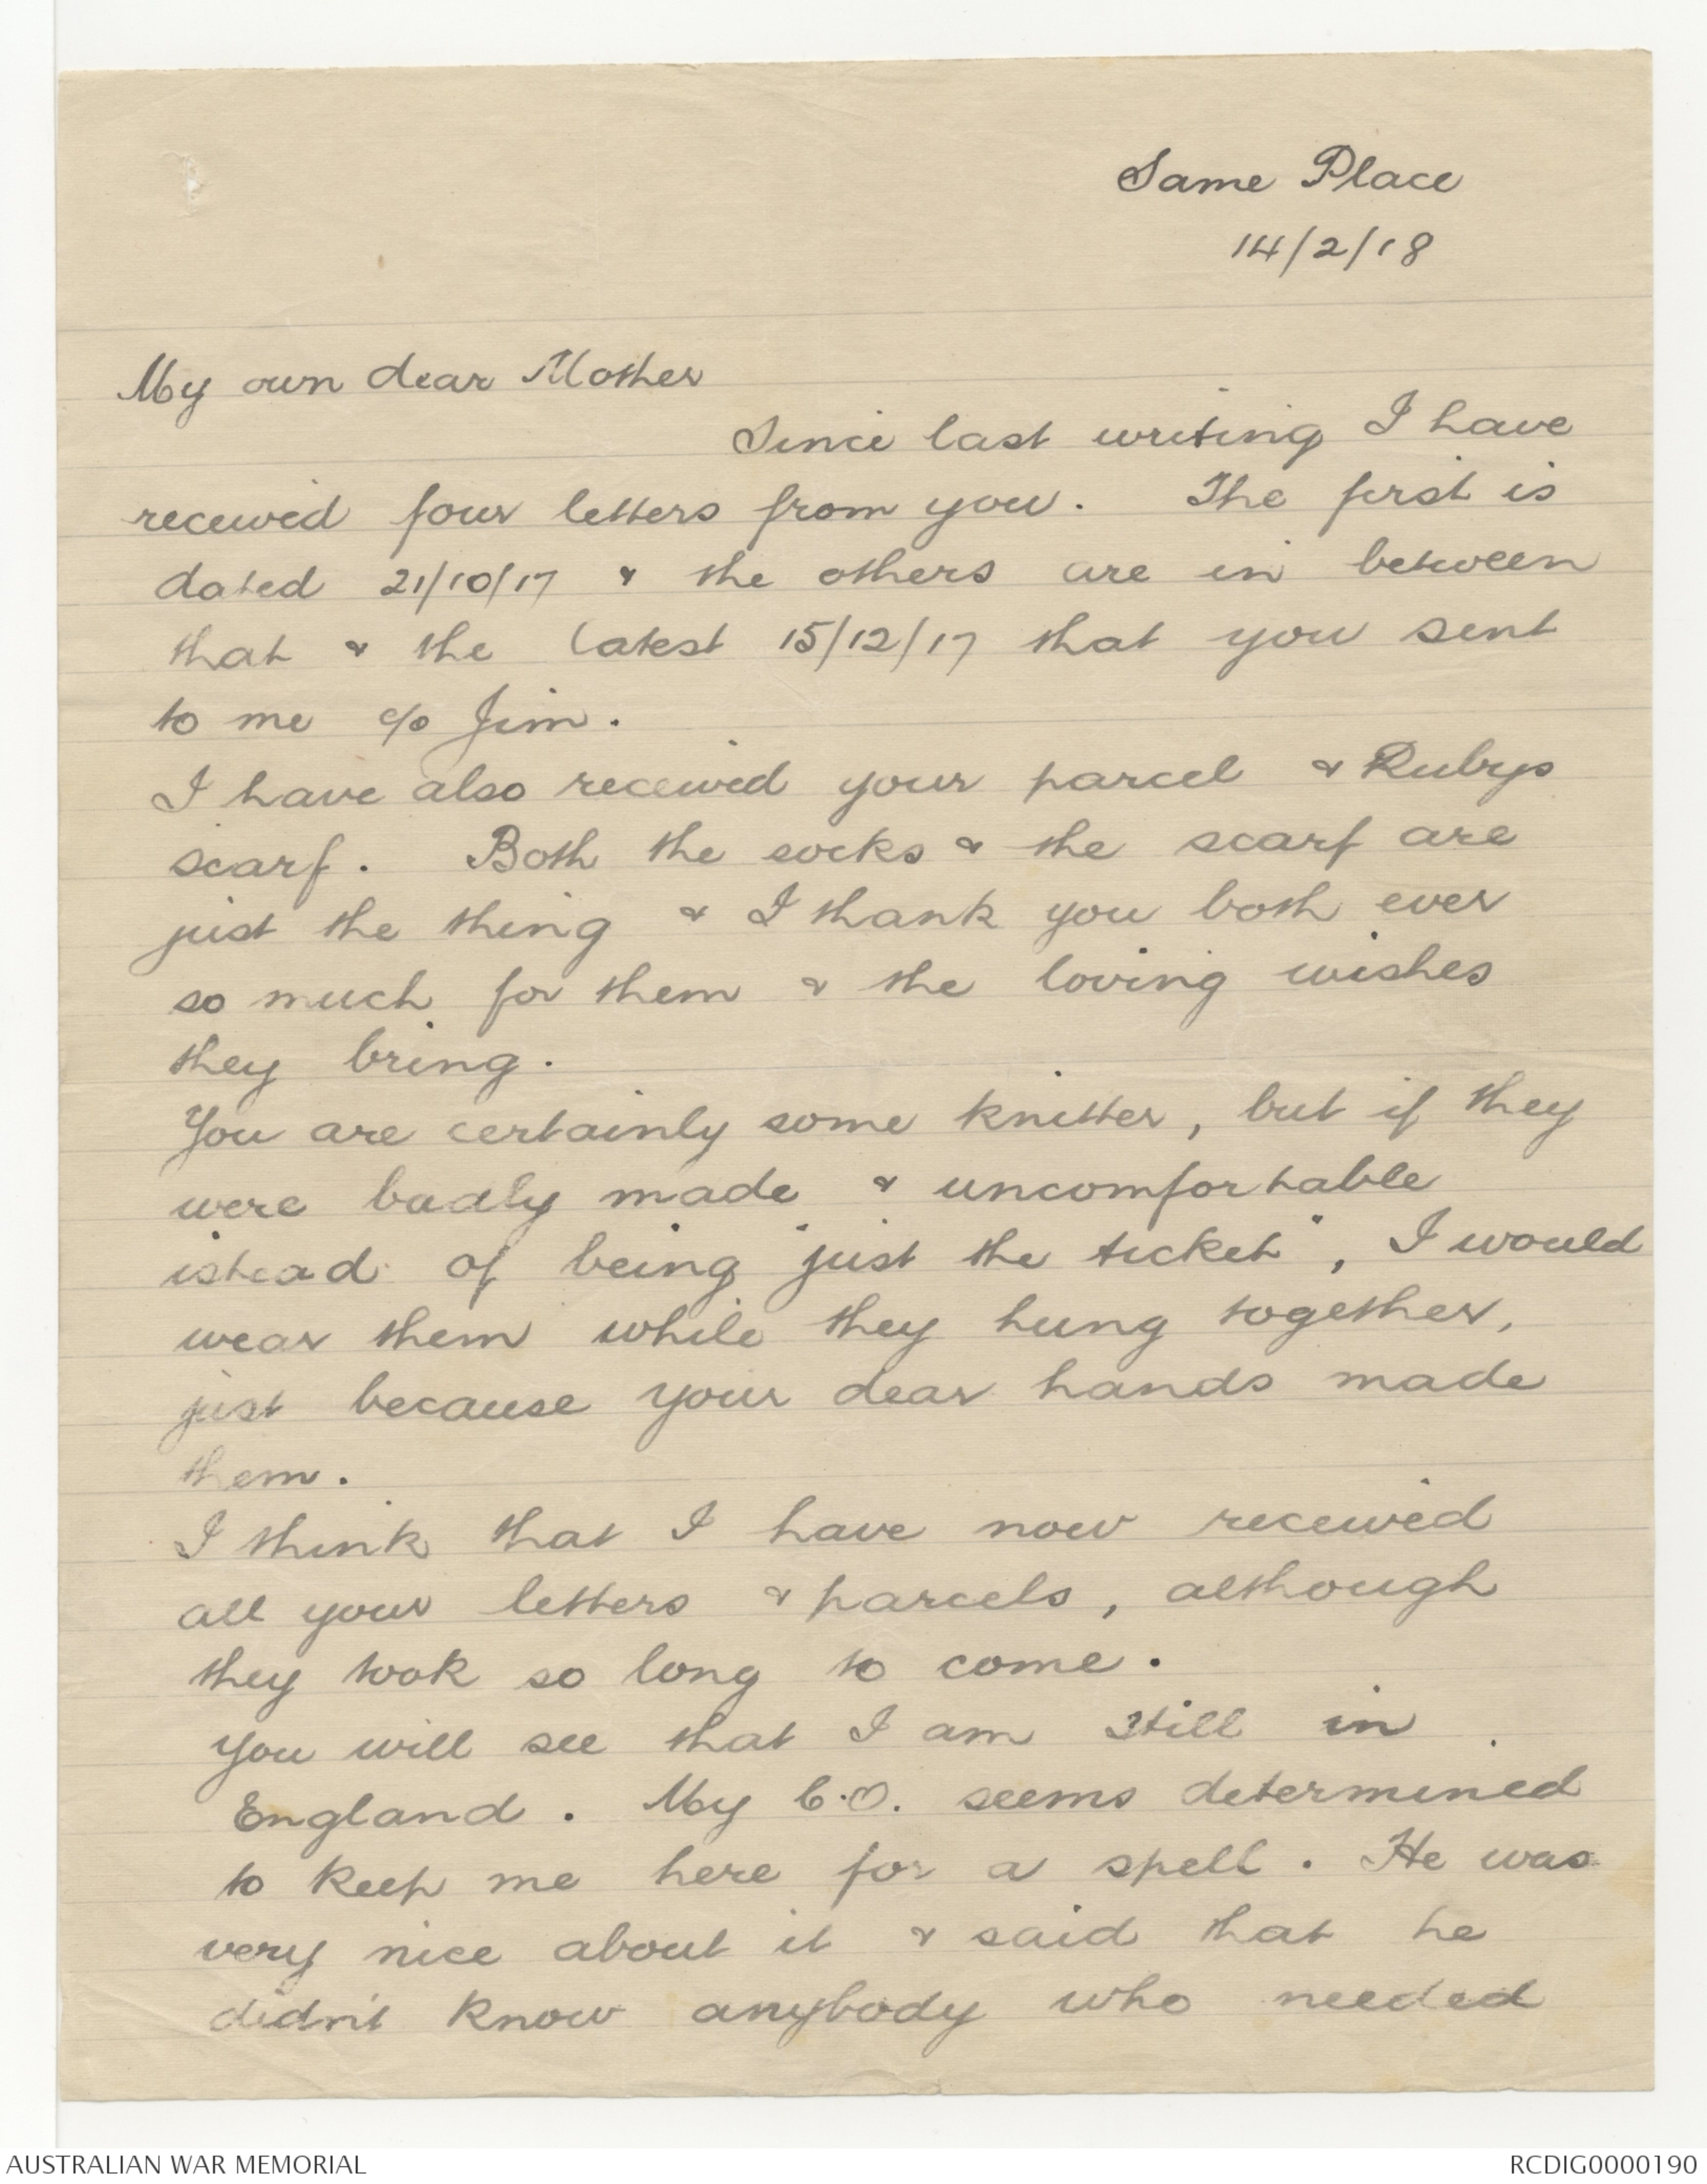 Same Place
14/2/18
My own dear Mother
Since last writing I have
received four letters from you. The first is
dated 21/10/17 & the others are in between
that & the latest 15/12/17 that you sent
to me c/o Jim.
I have also received your parcel & Rubys
scarf. Both the socks & the scarf are
just the thing & I thank you both ever
so much for them & the loving wishes
they bring.
You are certainly some knitter, but if they
were badly made & uncomfortable
istead of being "just the ticket", I would
wear them while they hung together,
just because your dear hands made
them.
I think that I have now received
all your letters & parcels, although
they took so long to come.
You will see that I am still in
England. My C.O. seems determined
to keep me here for a spell. He was
very nice about it & said that he
didn't know anybody who needed
AUSTRALIAN WAR MEMORIAL
RCDIG0000190